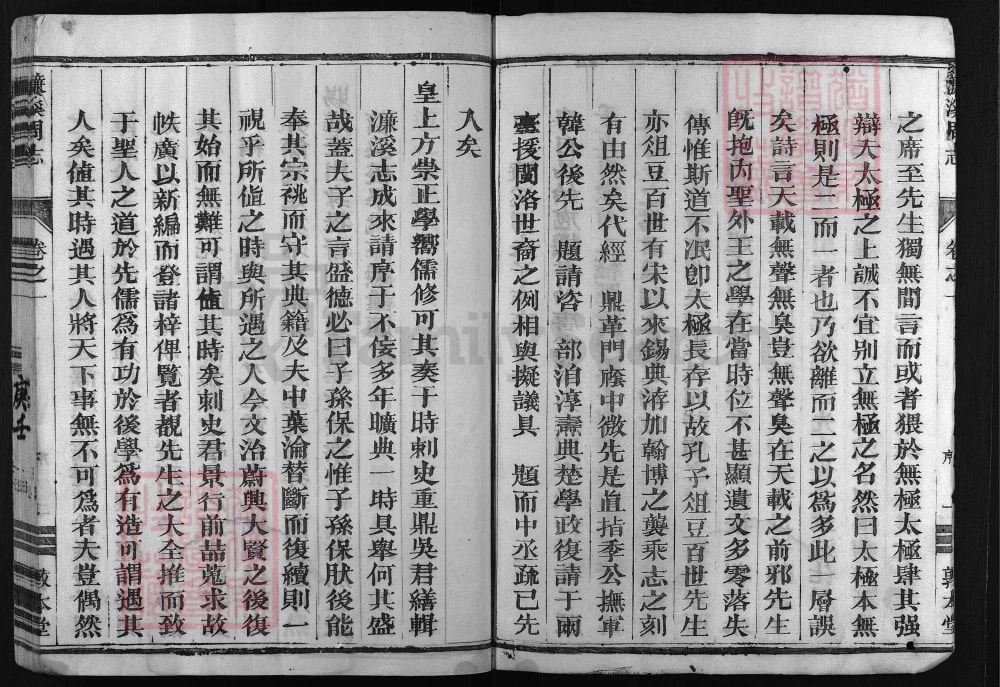 之席至先生獨無間言而或者猥於無極太極肆其强
辯大太極之上誠不宜别立無極之名然曰太極本無
極則是二而一者也乃欲離而二之以爲多此一層誤
矣詩言天載無聲無臭豈無聲臭在天載之前邪先生
旣抱內聖外王之學在當時位不甚顯遺文多零落失
傳惟斯道不泯卽太極長存以故孔子俎豆百世先生
亦俎豆百世有宋以來錫典洊加翰博之襲乘志之刻
有由然矣代經 鼎革門廕中微先是直指季公撫軍
韓公後先 題請咨 部洎淳燾典楚學政復請于兩
臺援閩洛世裔之例相與擬議具 題而中丞疏已先
入矣
皇上方崇正學嚮儒修可其奏于時刺史重鼎吳君繕輯
濂溪志成來請序于不佞多年曠典一時具舉何其盛
哉蓋夫子之言盛德必曰子孫保之惟子孫保狀後能
奉其宗祧而守其典籍及夫中葉淪替斷而復續則一
視乎所值之時與所遇之人今文治蔚興大賢之後復
其始而無難可謂値其時矣刺史君景行前喆蒐求故
帙廣以新編而登諸梓俾覽者覩先生之大全推而致
于聖人之道於先儒爲有功於後學爲有造可謂遇其
人矣値其時遇其人將天下事無不可爲者夫豈偶然
濂溪周志
卷之一
庚壬
敦本堂